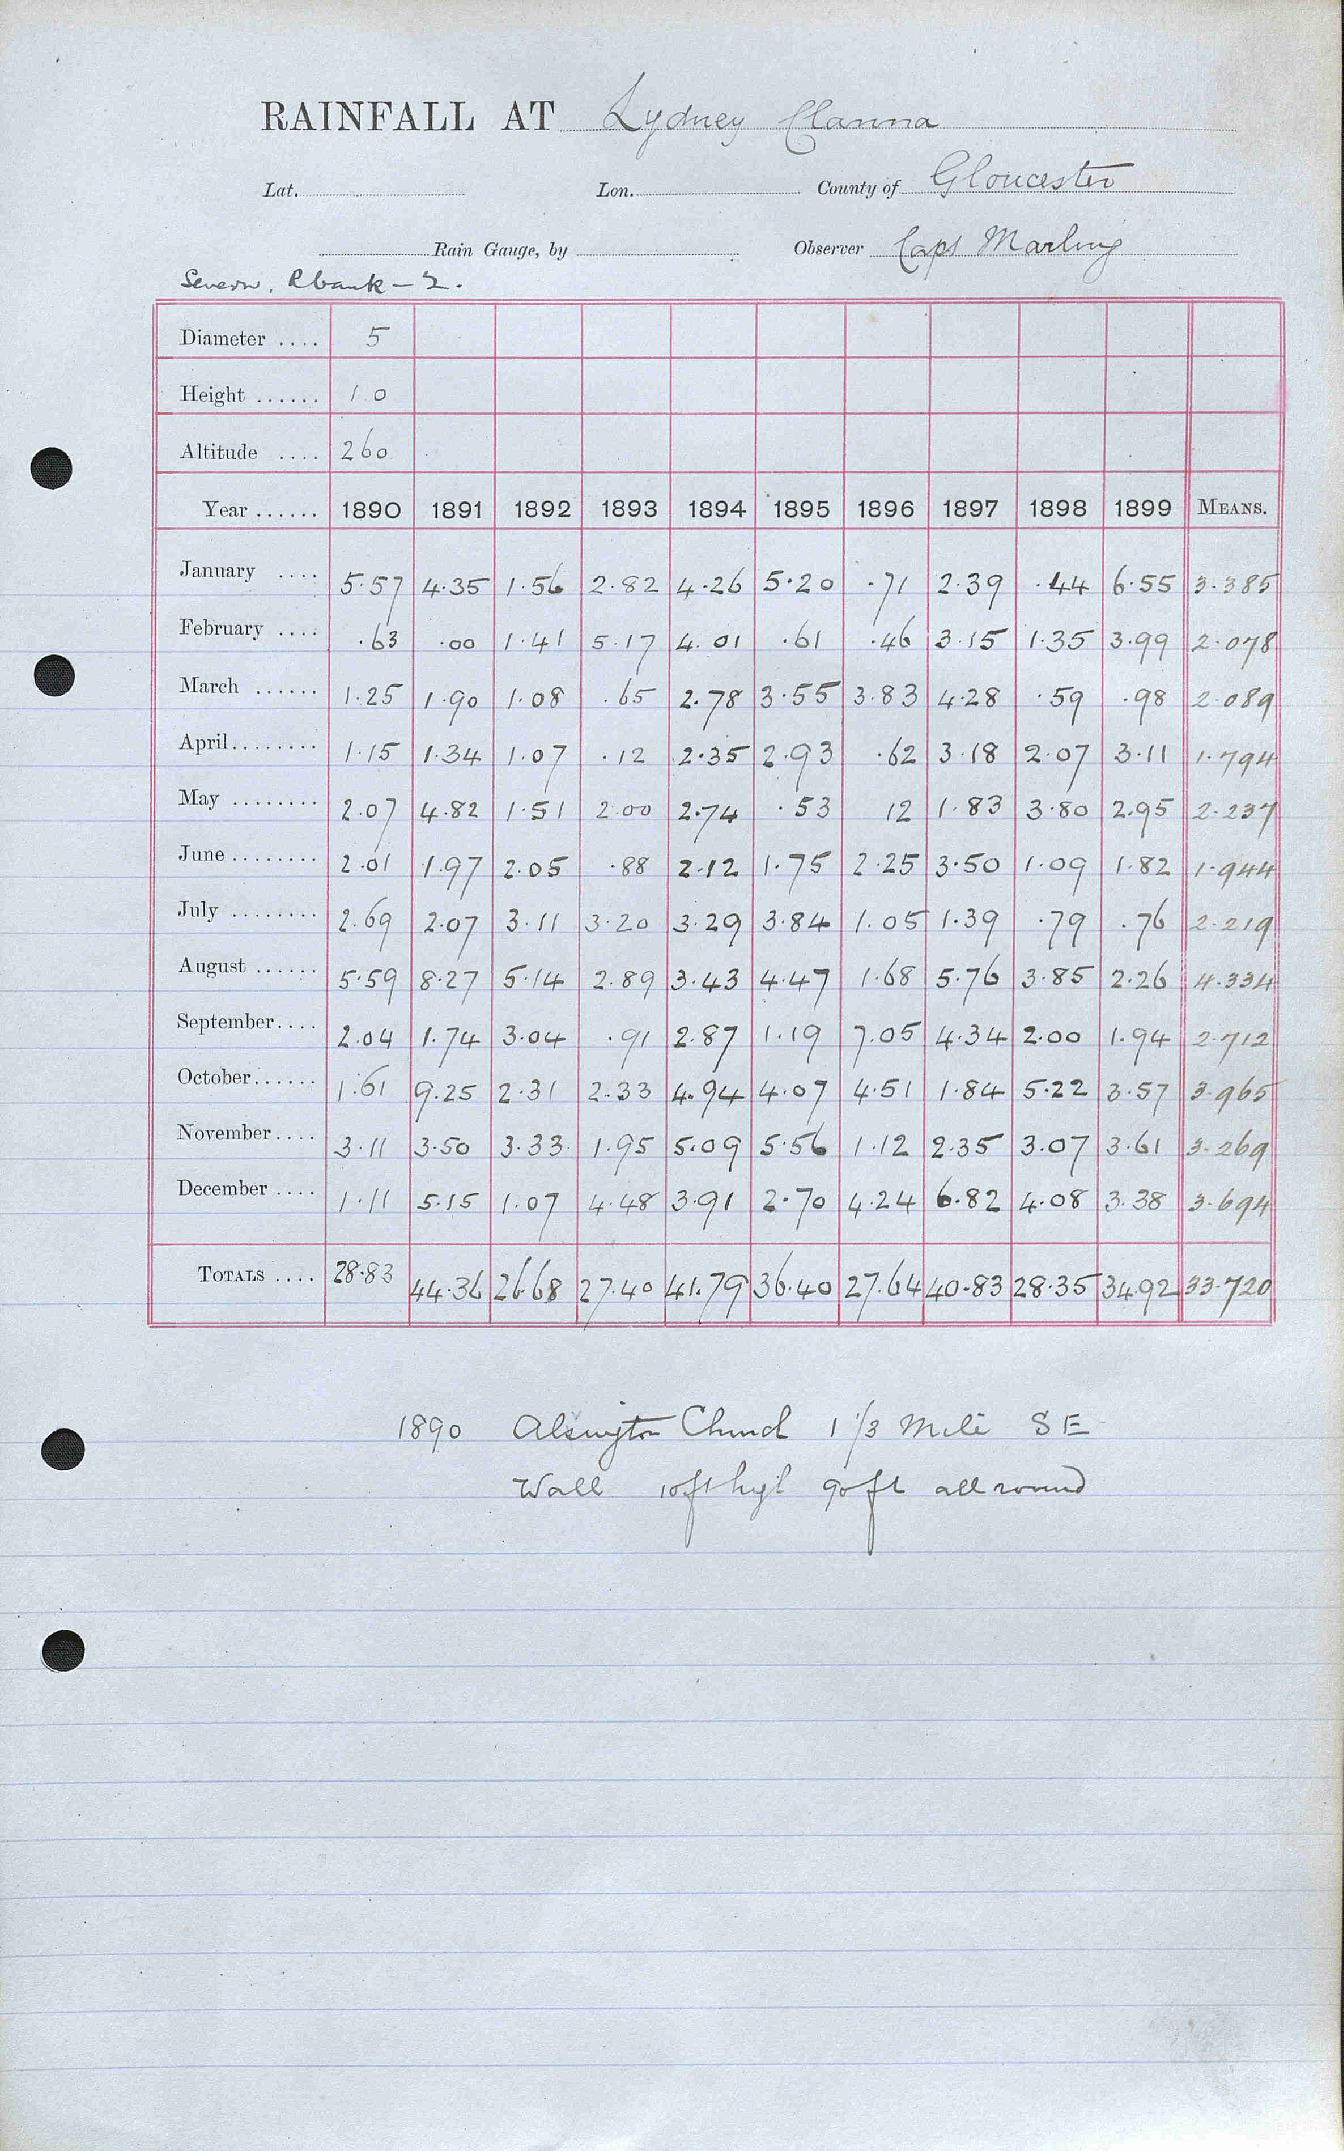 RAINFALL AT Lydney Clanna
Lat. Lon. County of Gloucester
Rain Gauge, by Observer Capt Marling
Severn, R bank - 2.
Diameter .... 5
Height ...... 1.0
Altitude .... 260
Year ...... 1890 1891 1892 1893 1894 1895 1896 1897 1898 1899 MEANS.
January .... 5.57 4.35 1.56 2.82 4.26 5.20 .71 2.39 .44 6.55 3.385
February .... .63 .00 1.41 5.17 4.01 .61 .46 3.15 1.35 3.99 2.078
March ...... 1.25 1.90 1.08 .65 2.78 3.55 3.83 4.28 .59 .98 2.089
April........ 1.15 1.34 1.07 .12 2.35 2.93 .62 3.18 2.07 3.11 1.794
May ........ 2.07 4.82 1.51 2.00 2.74 .53 12 1.83 3.80 2.95 2.237
June ........ 2.01 1.97 2.05 .88 2.12 1.75 2.25 3.50 1.09 1.82 1.944
July ........ 2.69 2.07 3.11 3.20 3.29 3.84 1.05 1.39 .79 .76 2.219
August ...... 5.59 8.27 5.14 2.89 3.43 4.47 1.68 5.76 3.85 2.26 4.334
September.... 2.04 1.74 3.04 .91 2.87 1.19 7.05 4.34 2.00 1.94 2.712
October...... 1.61 9.25 2.31 2.33 4.94 4.07 4.51 1.84 5.22 3.57 3.965
November.... 3.11 3.50 3.33 1.95 5.09 5.56 1.12 2.35 3.07 3.61 3.269
December .... 1.11 5.15 1.07 4.48 3.91 2.70 4.24 6.82 4.08 3.38 3.694
TOTALS .... 28.83 44.36 26.68 27.40 41.79 36.40 27.64 40.83 28.35 34.92 33.720
1890 Church 1 1/3 Mile SE
Wall 10ft high 90ft all round